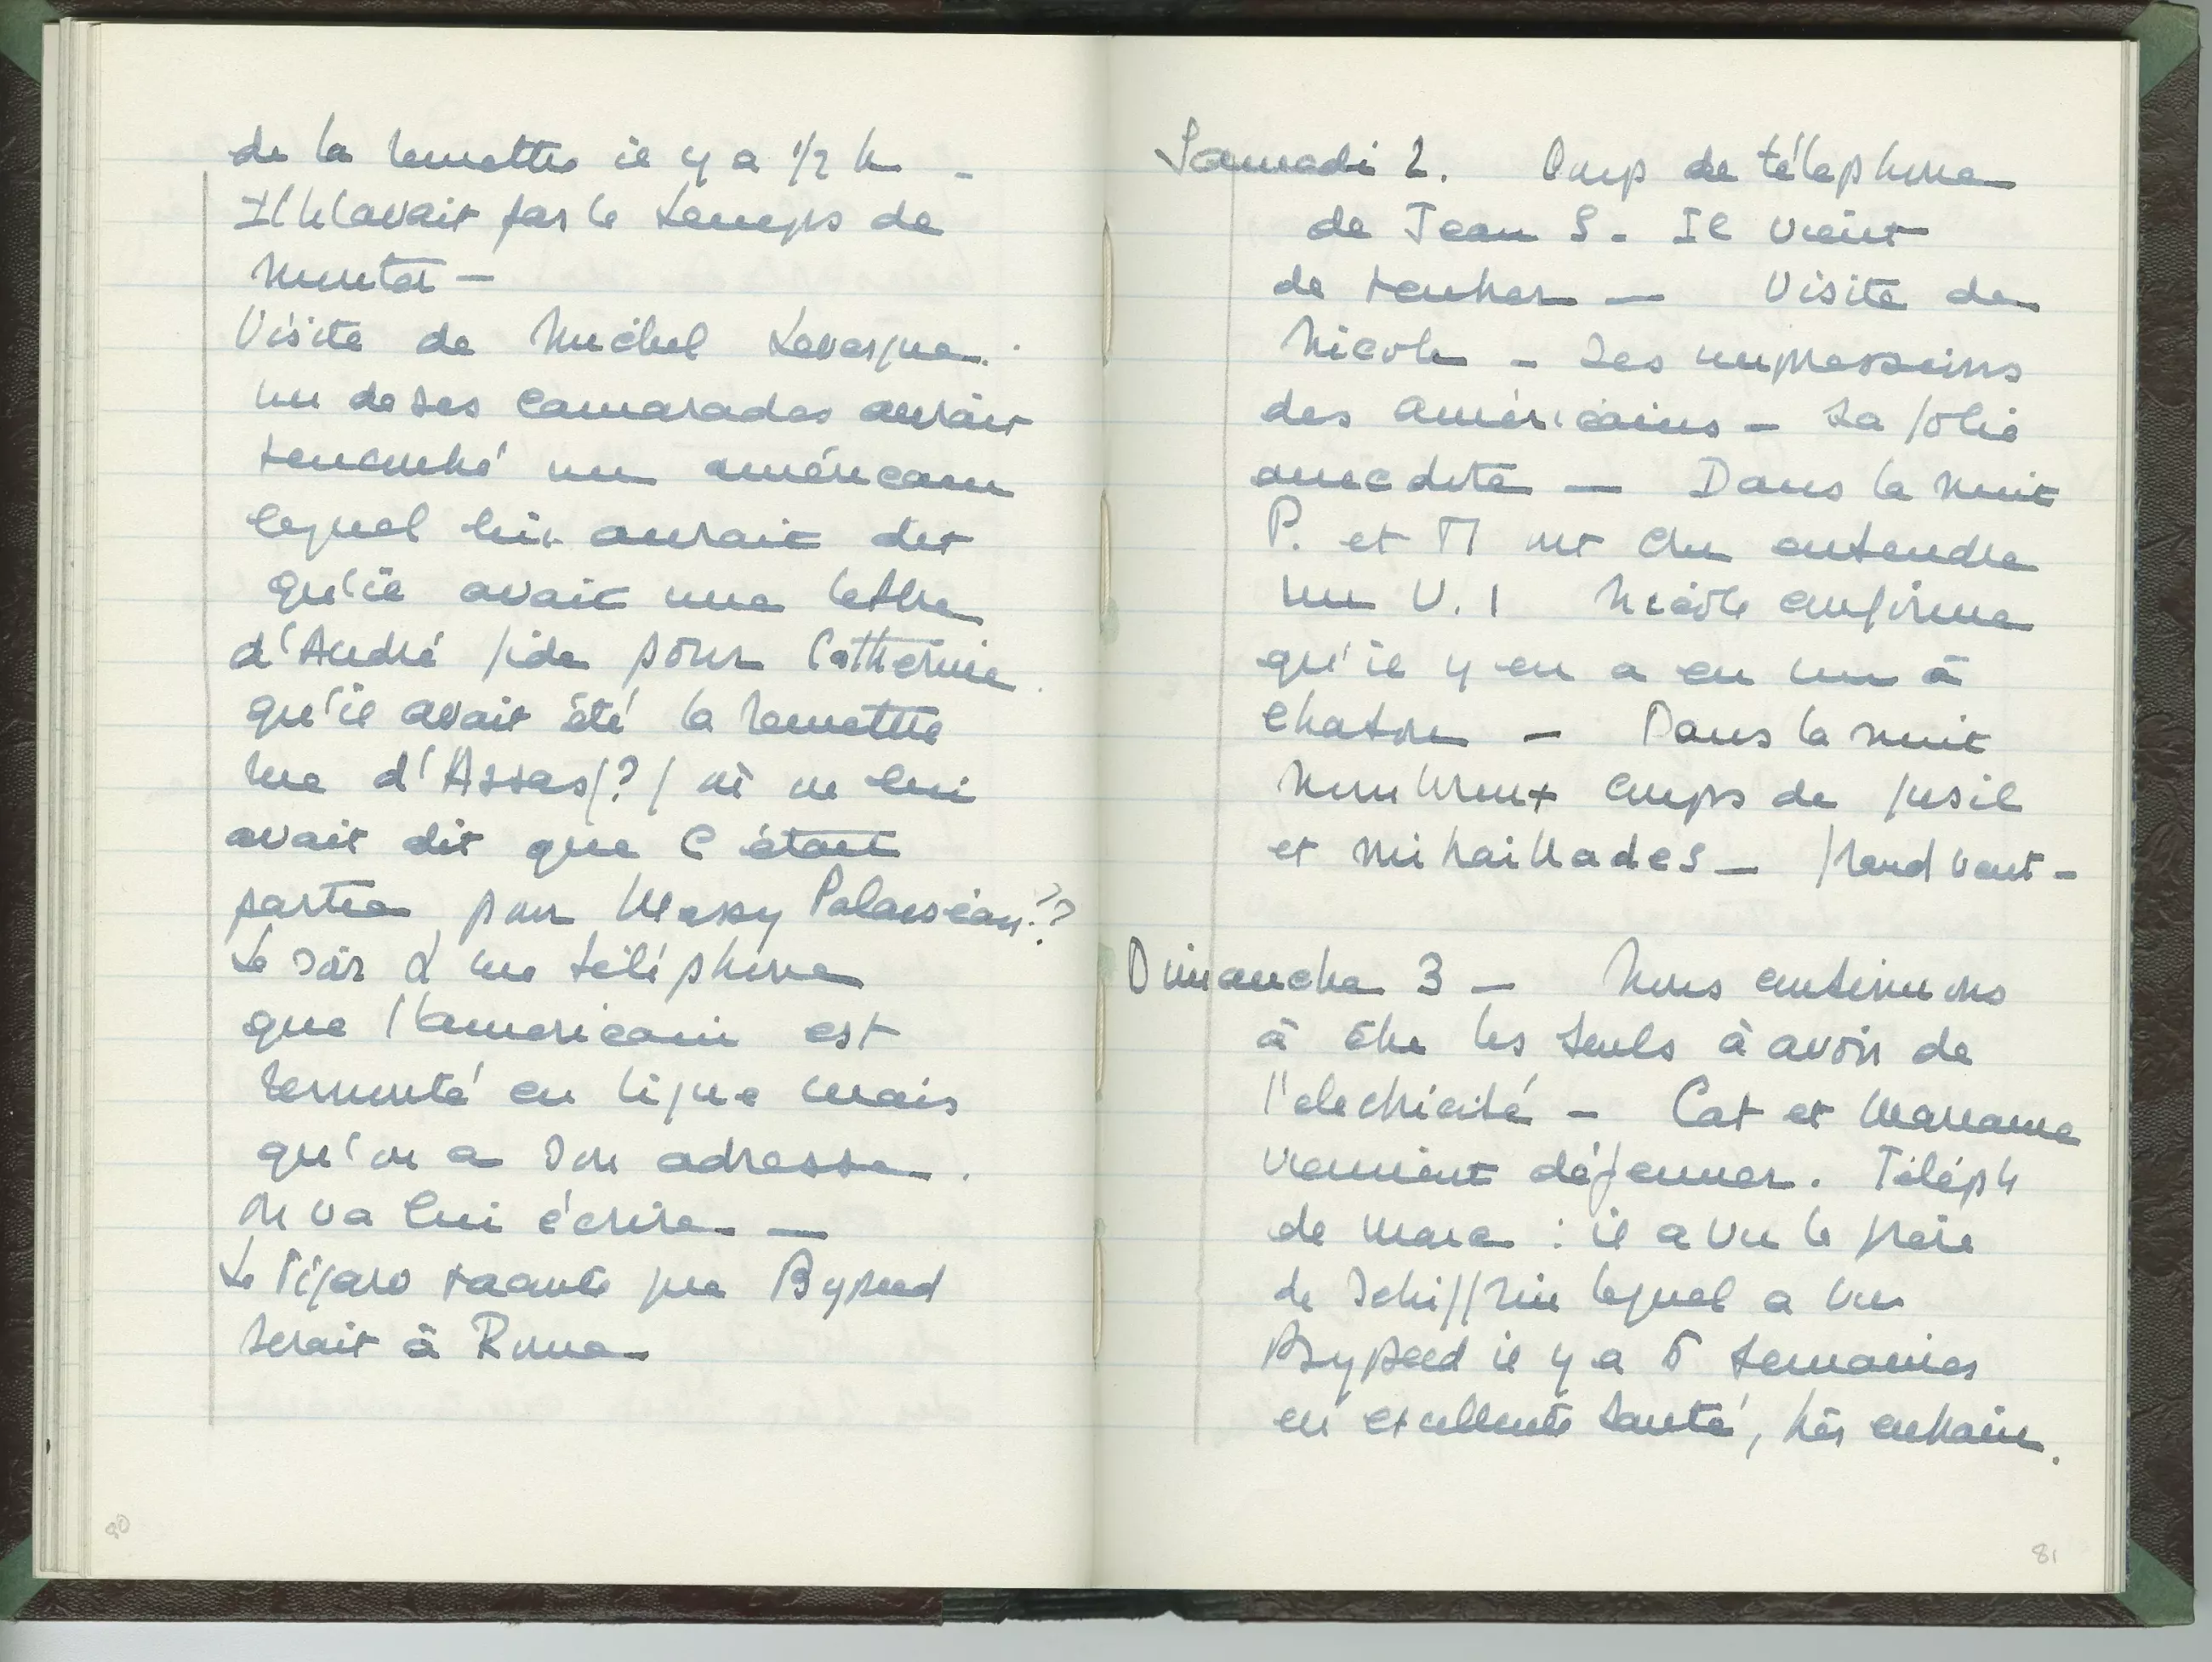 de la remettre il y a 1/2 h -
Il n'avait pas le temps de
monter -
Visite de Michel Levesque.
un de ses camarades aurait
rencontré un américain
lequel lui aurait dit
qu'il avait une lettre
d'André Gide pour Catherine.
qu'il avait été la remettre
rue d'Assas (?) où on lui
avait dit que C était
partie pour Massy Palaiseau??
Le soir me téléphone
que l'americain est
remonté en ligne mais
qu'on a son adresse.
On va lui écrire —
Le Figaro raconte que Bypeed
serait à Rome
80
Samedi 2. Coup de téléphone
de Jean S. Il vient
de rentrer — Visite de
Nicole - Ses impressions
des américains - Sa jolie
anecdote — Dans la nuit
P. et M ont cru entendre
un V.1 Nicole confirme
qu'il y en a eu un à
Chatou - Dans la nuit
nombreux coups de fusil
et mitraillades - Grand vent -
Dimanche 3 - Nous continuons
à être les seuls à avoir de
l'electricité - Cat et Marianne
viennent déjeuner. Téléph
de Marc : il a vu le frère
de Schiffrin lequel a vu
Bypeed il y a 5 semaines
en excellente santé, très entrain.
81